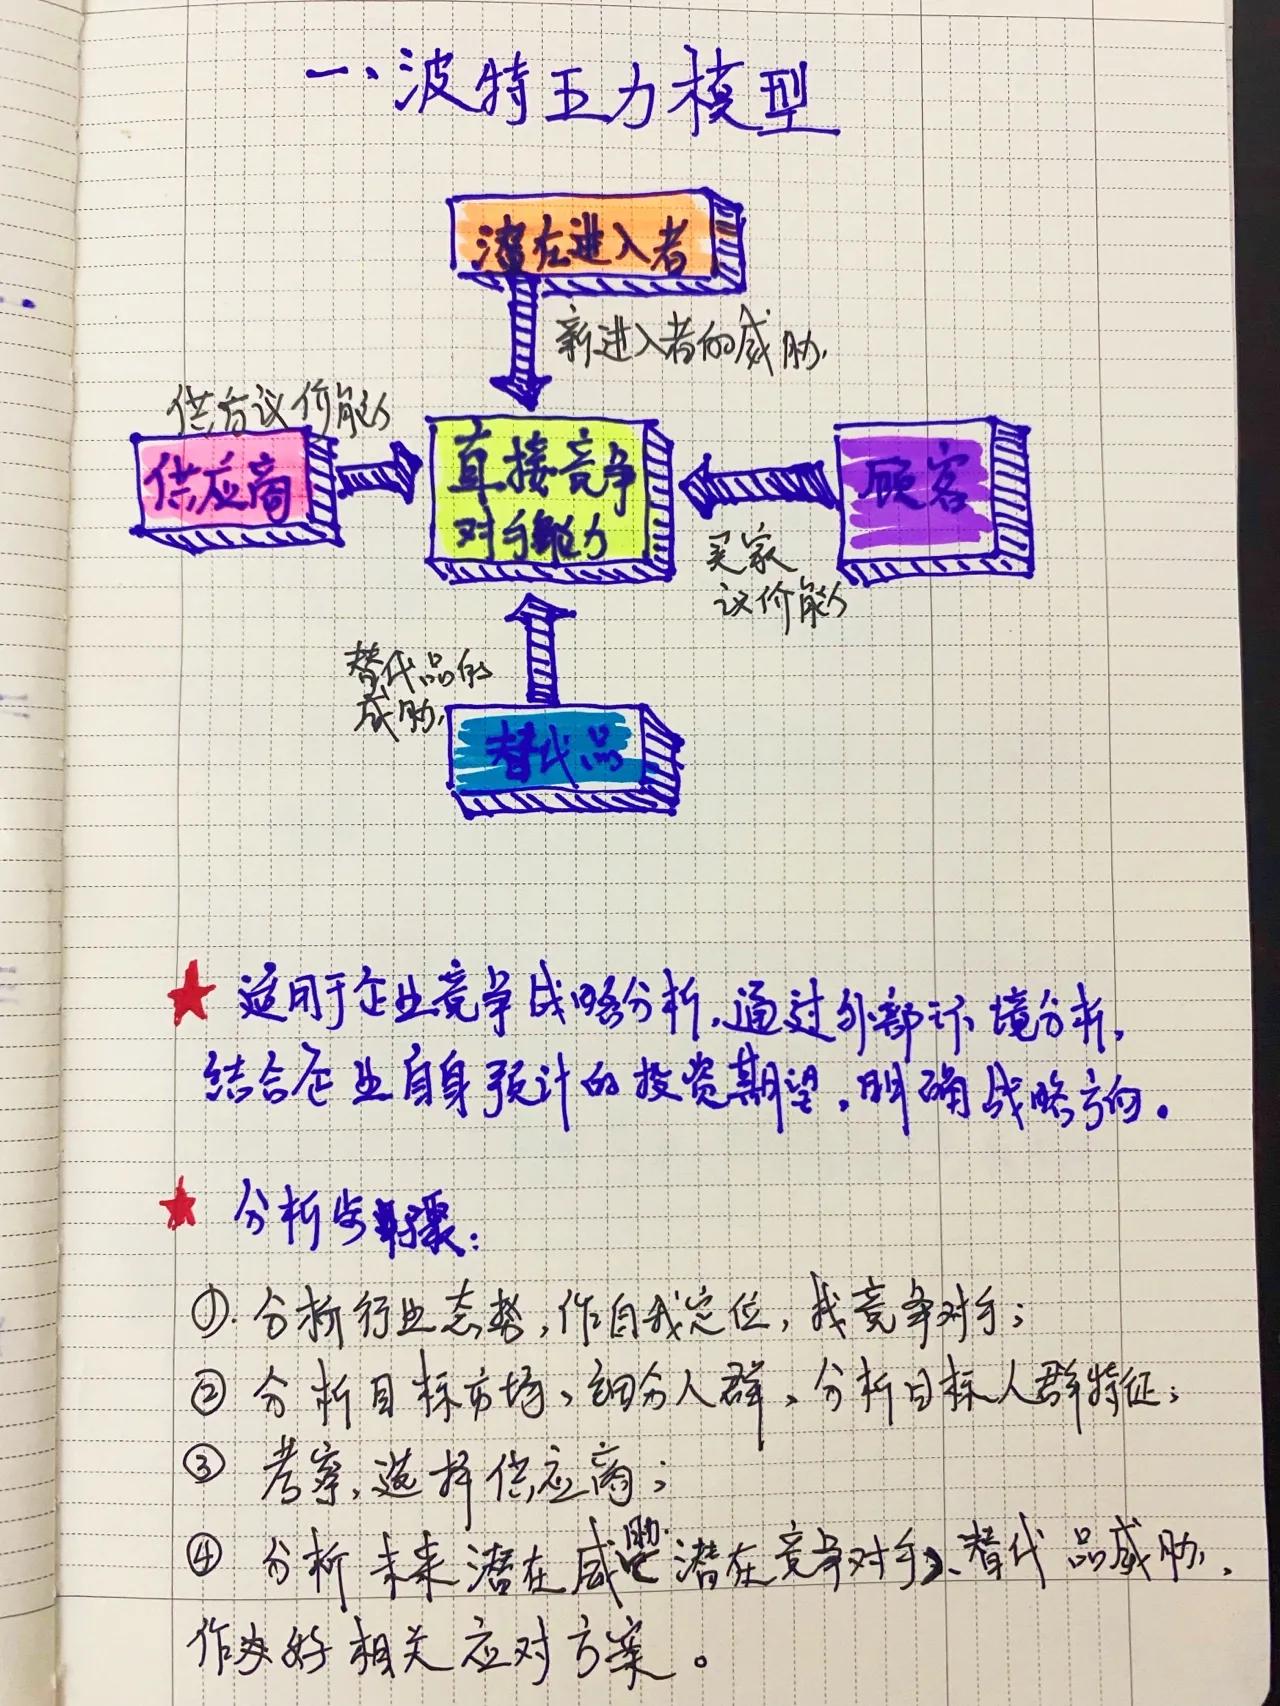 一、波特五力模型
潜在进入者
新进入者的威胁
供方议价能力
供应商
直接竞争
对手能力
顾客
买家
议价能力
替代品的
威胁
替代品
★ 适用于企业竞争战略分析,通过外部环境分析,
结合企业自身预计的投资期望,明确战略方向。
★ 分析步骤:
①.分析行业态势,作自我定位,找竞争对手;
② 分析目标市场、细分人群、分析目标人群特征;
③ 考察、选择供应商;
④ 分析未来潜在威胁 潜在竞争对手、替代品威胁,
作好相关应对方案。